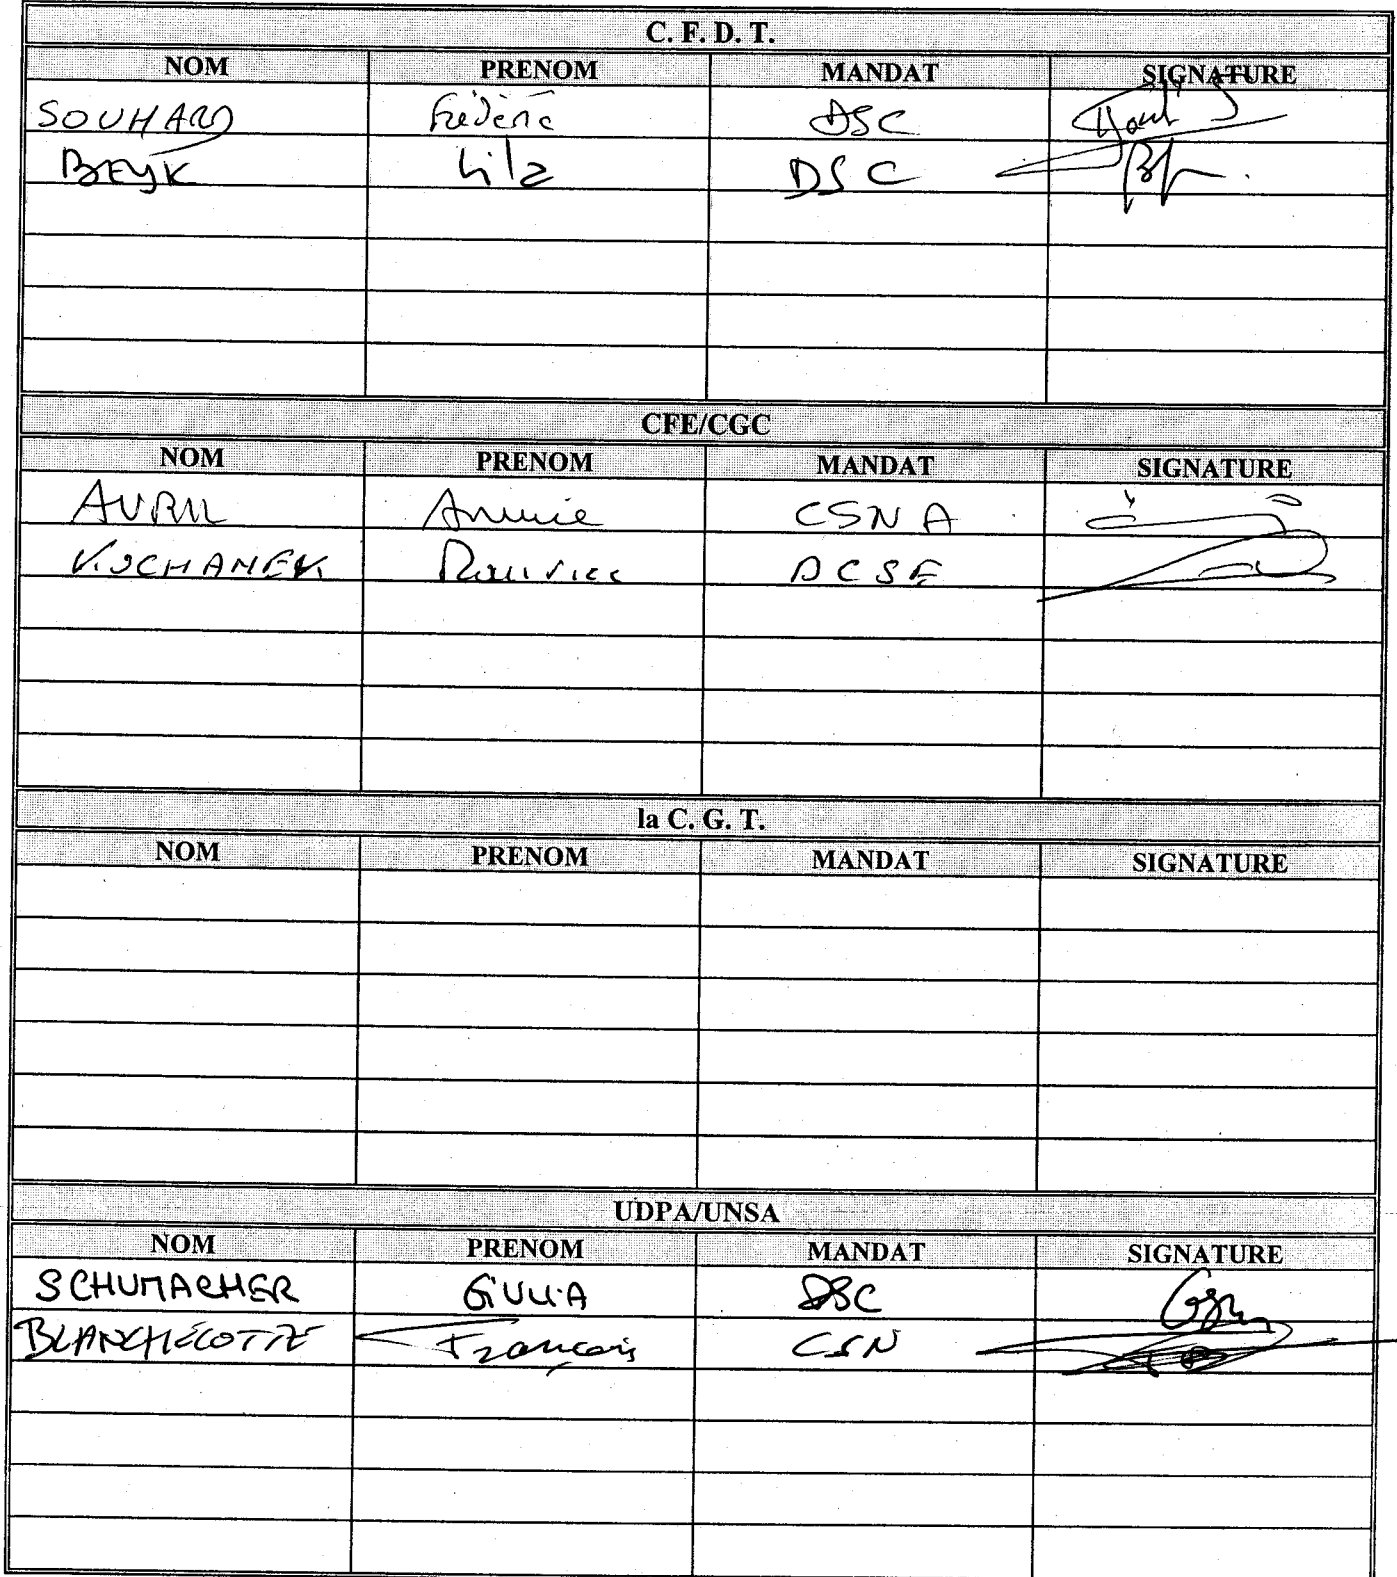 C. F. D. T.
NOM PRENOM MANDAT SIGNATURE
SOUHARD Frédéric DSC
BEYK Lila DSC
CFE/CGC
NOM PRENOM MANDAT SIGNATURE
AVRIL Annie CSNA
KOCHANEK Maurice DCSE
la C. G. T.
NOM PRENOM MANDAT SIGNATURE
UDPA/UNSA
NOM PRENOM MANDAT SIGNATURE
SCHUMACHER GIULIA DSC
BLANCHÉCOTTE François CSN